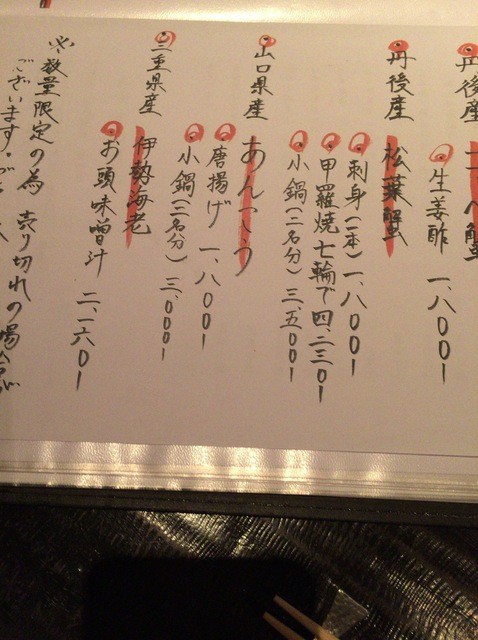 丹後産
生姜酢 一、八〇〇ー
丹後産 松葉蟹
刺身(一本)一、八〇〇ー
甲羅焼 七輪で 四、二三〇ー
小鍋(二名分)三、五〇〇ー
山口県産 あんこう
唐揚げ 一、八〇〇ー
小鍋(二名分)三、〇〇〇ー
三重県産 伊勢海老
お頭味噌汁 二、一六〇ー
※数量限定の為 売り切れの場合が
ございます。